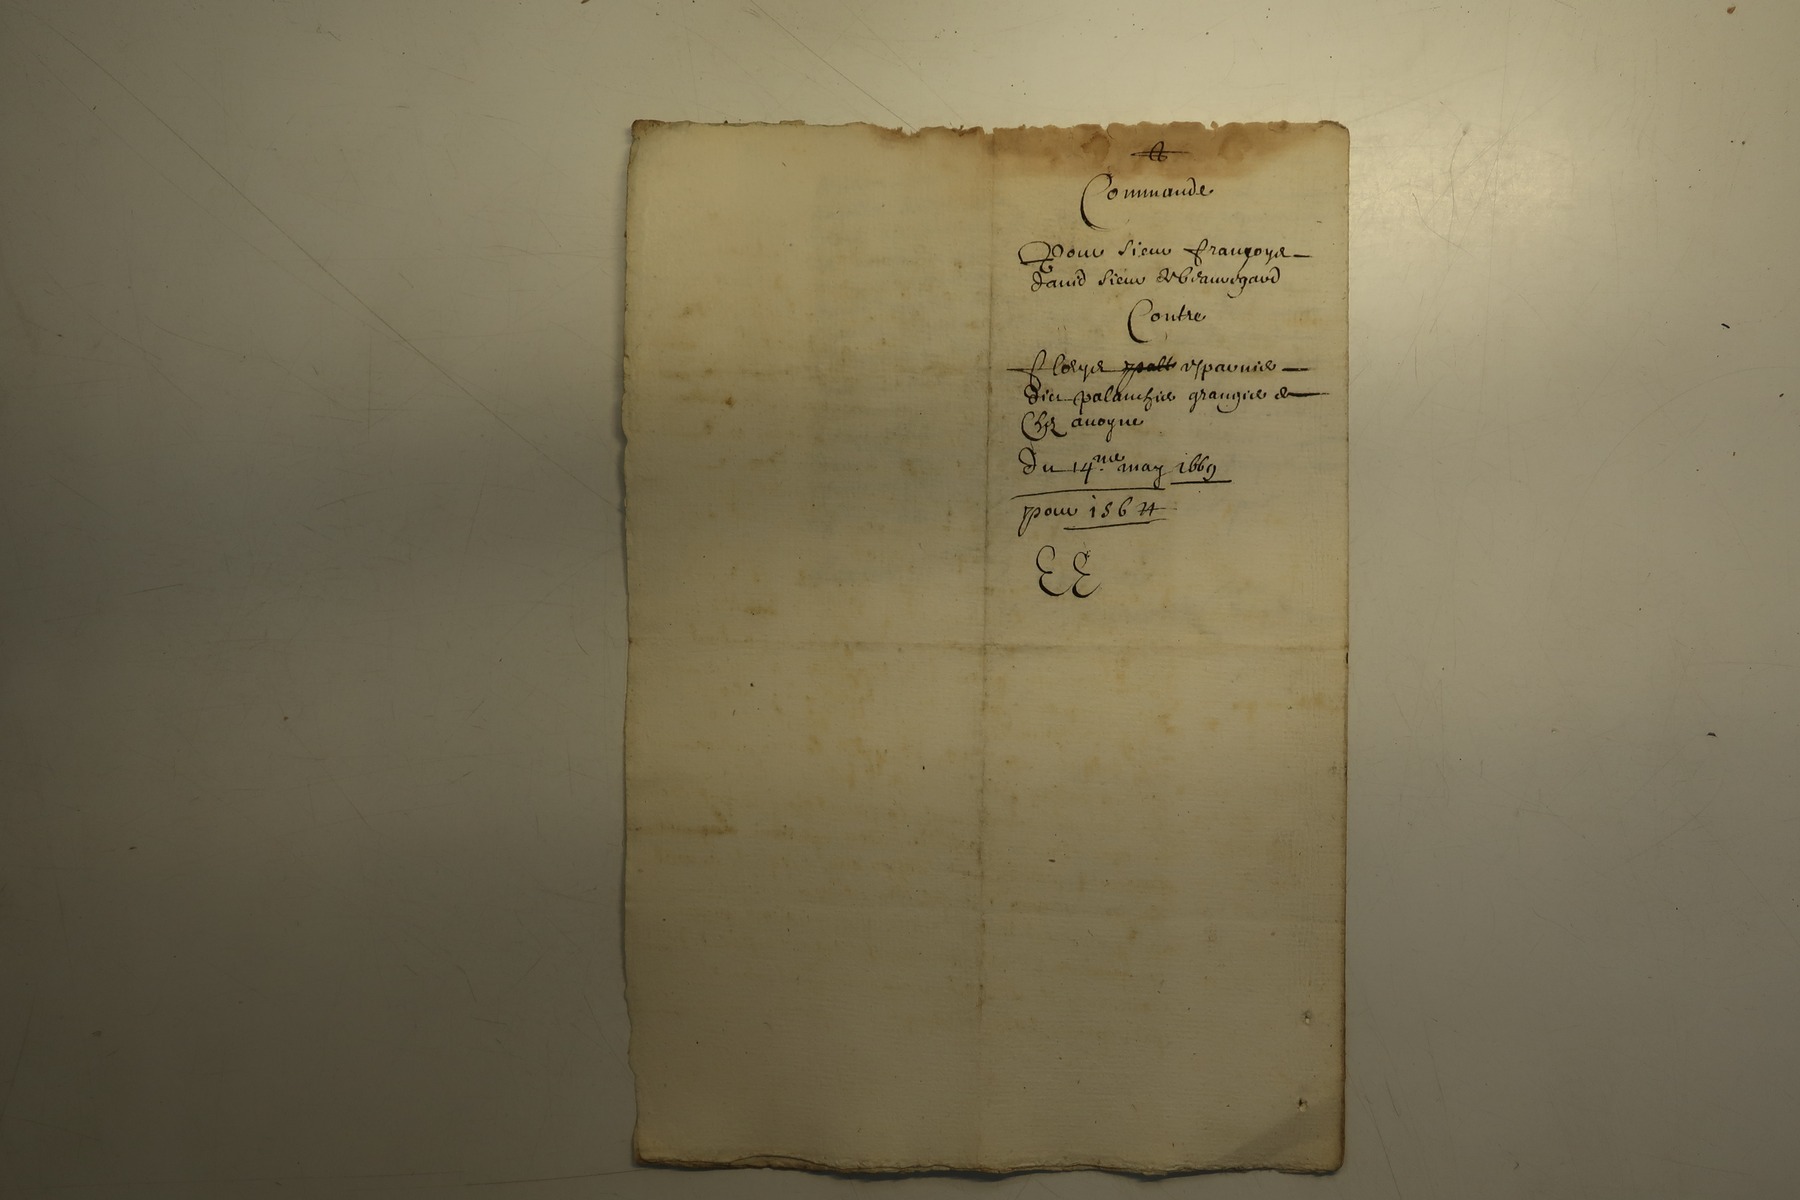 Commande
Pour sieur françoys
david sieur de beauregard
Contre
fleurs palt esparvie
dict palanchie grangie de
Chavanoyne
du 14.me may 1669
pour 156 #
EE